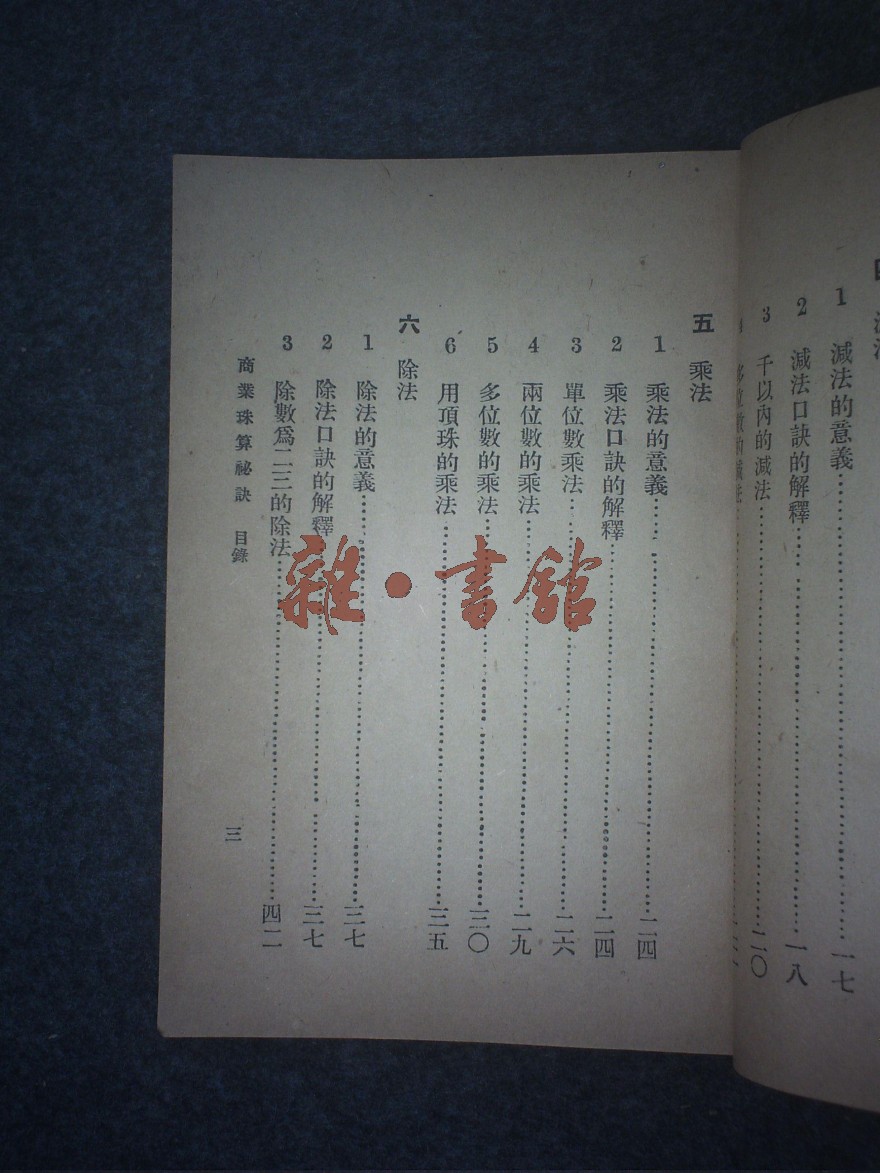 1 減法的意義……一七
2 減法口訣的解釋……一八
3 千以內的減法……二〇
多位數的減法
五 乘法
1 乘法的意義……二四
2 乘法口訣的解釋……二四
3 單位數乘法……二六
4 兩位數的乘法……二九
5 多位數的乘法……三〇
6 用頂珠的乘法……三五
六 除法
1 除法的意義……三七
2 除法口訣的解釋……三七
3 除數爲二三的除法……四二
商業珠算祕訣 目錄
三
雜·書館